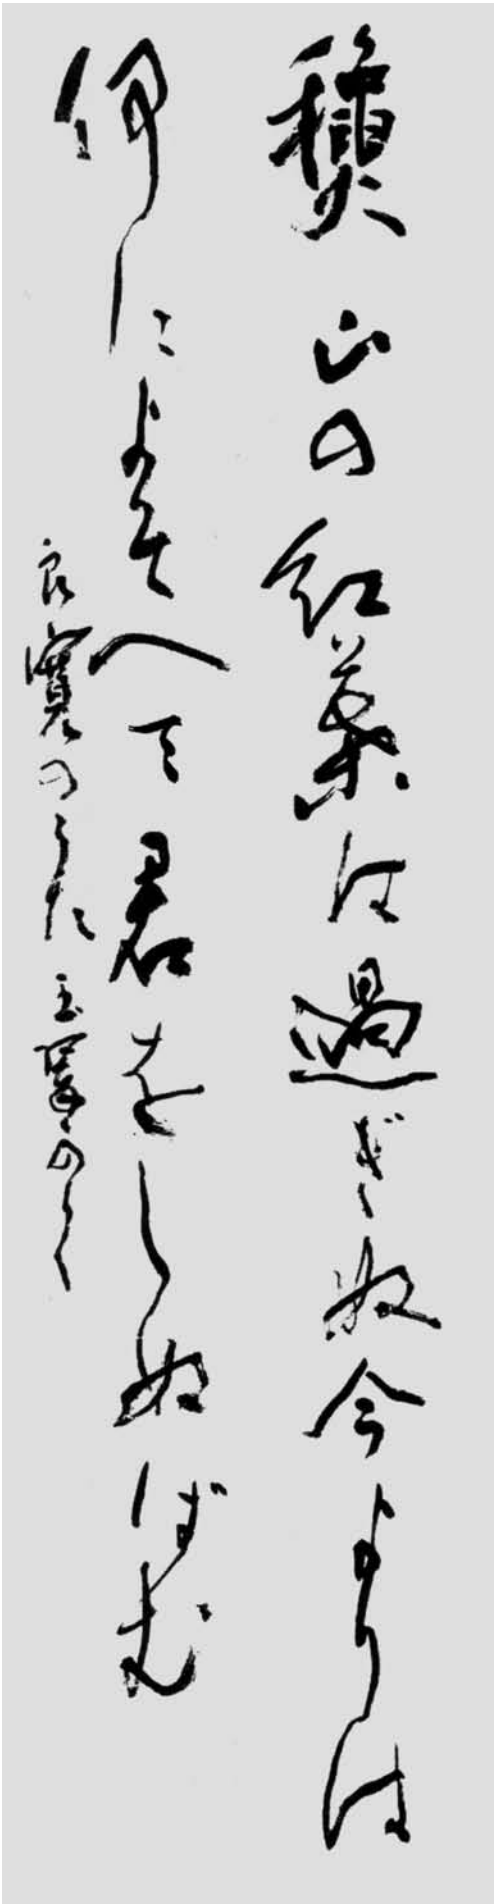 龝山の紅葉は過ぎぬ今よりは
何によそへて君をしぬばむ
良寛のうた